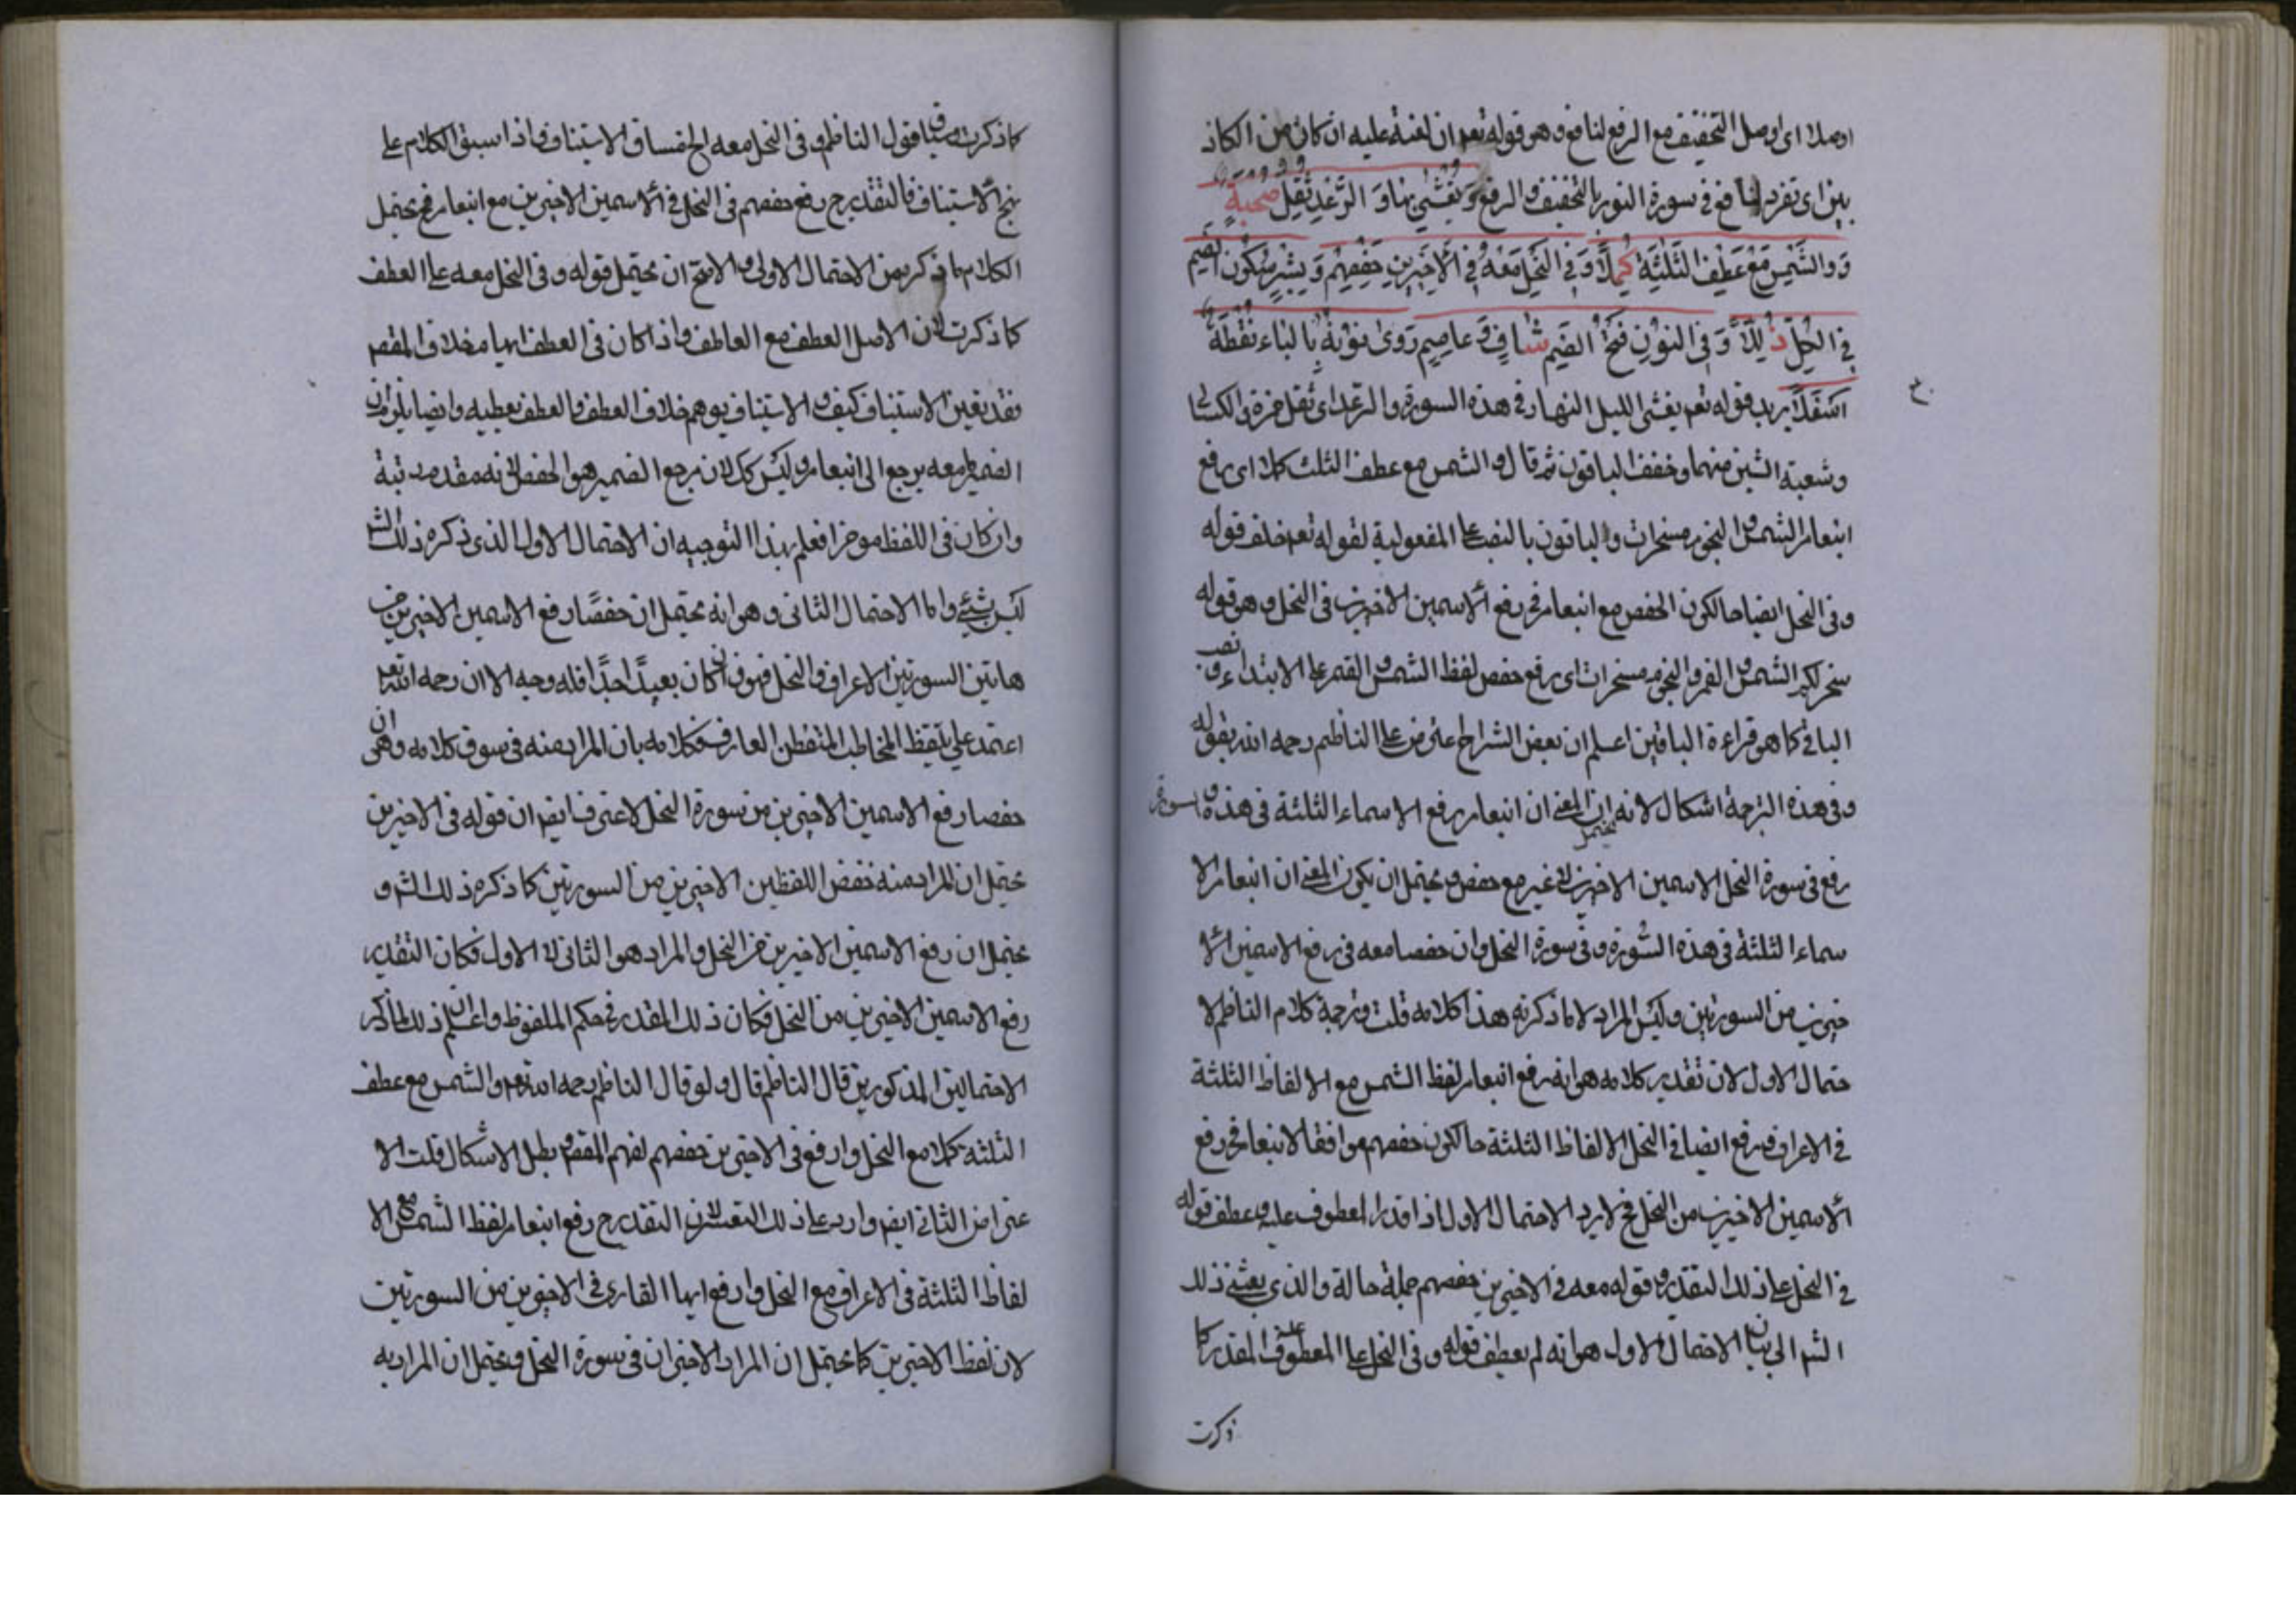 اوصلا اى اوصل التخفيف مع الرفع لنافع وهو قوله تعه ان لعنة عليه ان كان من الكاذ
بين اى تفرد نافع فى سورة النور بالتخفيف والرفع وَيُغْشِى بِهَا وَ الرَّعْدِ ثَقَّلَ صُحْبَةٌ
وَ وَالشَّمْسُ مَعْ عَطْفِ الثَّلٰثَةِ كَمَّلَا وَ فِى النَّحْلِ مَعْهُ فِى الْاَخِيرَيْنِ حَفْصُهُمْ وَ نُشْرًا سُكُونُ الضَّمِّ
فِى الْكُلِّ ذُلِّلَا وَ فِى النُّونِ فَتْحُ الضَّمِّ شَافٍ وَ عَاصِمٌ رَوٰى نُونَهُ بِالْبَاءِ نُقْطَةٌ
اَسْفَلَا يريد قوله تعه يغشى الليل النهار فى هذه السورة والرعد اى ثقل حمزة والكسائى
وشعبة الشين منهما وخفف الباقون ثم قال والشمس مع عطف الثلث كملا اى رفع
ابنعامر الشمس والنجوم مسخرات والباقون بالنصب على المفعولية لقوله تعه خلف قوله
وفى النحل ايضا حالكون الحفص مع ابنعامر فى رفع الاسمين الاخيرين فى النحل وهو قوله
سخر لكم الشمس والقمر والنجوم مسخرات اى رفع حفص لفظ الشمس والقمر على الابتداء ونصب
الباقى كما هو قراءة الباقين اعلم ان بعض الشراح اعترض على الناظم رحمه الله بقوله
وفى هذه الترجمة اشكال لانه يحتمل ان المعنى ان ابنعامر رفع الاسماء الثلثة فى هذه السورة و
رفع فى سورة النحل الاسمين الاخيرين لا غير مع حفص ويحتمل ان يكون المعنى ان ابنعامر الا
سماء الثلثة فى هذه السورة وفى سورة النحل وان حفصا معه فى رفع الاسمين الا
خيرين من السورتين وليس المراد الا ما ذكرته هذا كلامه قلت وترجمة كلام الناظم لا
حتمال الاول لان تقدير كلامه هو انه رفع ابنعامر لفظ الشمس مع الالفاظ الثلثة
فى الاعراف ورفع ايضا فى النحل الالفاظ الثلثة حالكون حفصهم موافقا لابنعامر فى رفع
الاسمين الاخيرين من النحل فح لا يرد الاحتمال الاول اذا قدر المعطوف عليه وعطف قوله
فى النحل على ذلك التقدير وقوله معه فى الاخيرين حفصهم جملة حالة والذى بعثه ذلك
الشر الى بيان الاحتمال الاول هو انه لم يعطف قوله وفى النحل على المعطوف عليه المقدر كما
ذكرت
كما ذكرت قول الناظم وفى النحل معه الخ مساق الاستيناف واذا سبق الكلام على
نهج الاستيناف فالتقدير ح رفع حفصهم فى النحل فى الاسمين الاخيرين مع ابنعامر فح يحتمل
الكلام ما ذكر من الاحتمال الاولى والاصح ان يحتمل قوله وفى النحل معه على العطف
كما ذكرت لان الاصل العطف مع العاطف واذا كان فى العطف ايهام خلاف المقصو
فقد يعين الاستيناف كيف والاستيناف يوهم خلاف العطف فالعطف يعطيه وايضا يلزم ان
الضمير فى معه يرجع الى ابنعامر وليس كك لان مرجع الضمير هو الحفص لانه مقدم رتبة
وان كان فى اللفظ موخرا فعلم بهذا التوجيه ان الاحتمال الاول الذى ذكره ذلك الش
ليس بشئ واما الاحتمال الثانى وهو انه يحتمل ان حفصًا رفع الاسمين الاخيرين من
هاتين السورتين الاعراف والنحل فهو وان كان بعيدًا جدًا فله وجه الا ان رحمه الله تعه
اعتمد على تيقظ المخاطب المتفطن العارف كلامه بان المراد منه فى سوق كلامه وهو ان
حفصا رفع الاسمين الاخيرين من سورة النحل لاعترافنا بقه ان قوله فى الاخيرين
يحتمل ان المراد منه خفض اللفظين الاخيرين من السورتين كما ذكره ذلك الش و
يحتمل ان رفع الاسمين الاخيرين من النحل والمراد هو الثانى لا الاول فكان التقدير
رفع الاسمين الاخيرين من النحل فكان ذلك المقدر فى حكم الملفوظ واعلم ان ذلك لما ذكر
الاحتمالين المذكورين قال الناظم قال ولو قال الناظم رحمه الله تعه والشمس مع عطف
الثلثة كملا مع النحل وارفع فى الاخيرين حفصهم لفهم المقصو بطل الاشكال قلت الا
عتراض الثانى ايضه وارد على ذلك التفسير لان التقدير ح رفع ابنعامر لفظ الشمس مع الا
لفاظ الثلثة فى الاعراف مع النحل وارفع ايها القارى فى الاخيرين من السورتين
لان لفظ الاخيرين كما يحتمل ان المراد الاخيران فى سورة النحل ويحتمل ان المراد به